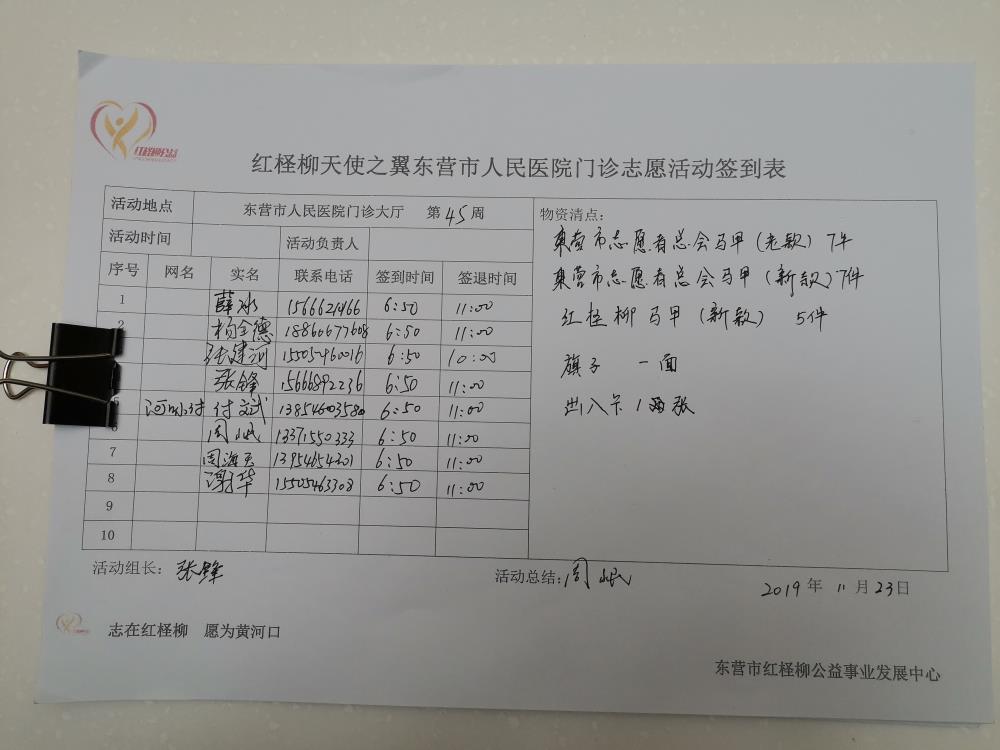 红柽柳公益
红柽柳天使之翼东营市人民医院门诊志愿活动签到表
活动地点 东营市人民医院门诊大厅 第45周
活动时间 活动负责人
序号 网名 实名 联系电话 签到时间 签退时间
1 薛冰 15666214166 6:50 11:00
2 杨全德 18860677608 6:50 11:00
张建河 15505460016 6:50 10:00
张锋 15666892236 6:50 11:00
5 付文武 13854603580 6:50 11:00
6 周岷 13371550333 6:50 11:00
7 周海天 13954654201 6:50 11:00
8 谢华 15505463308 6:50 11:00
9
10
物资清点:
东营市志愿者总会马甲(老款)7件
东营市志愿者总会马甲(新款)7件
红柽柳马甲(新款) 5件
旗子 一面
出入卡 两张
活动组长: 张锋 活动总结: 周岷
2019年 11月23日
志在红柽柳 愿为黄河口
东营市红柽柳公益事业发展中心